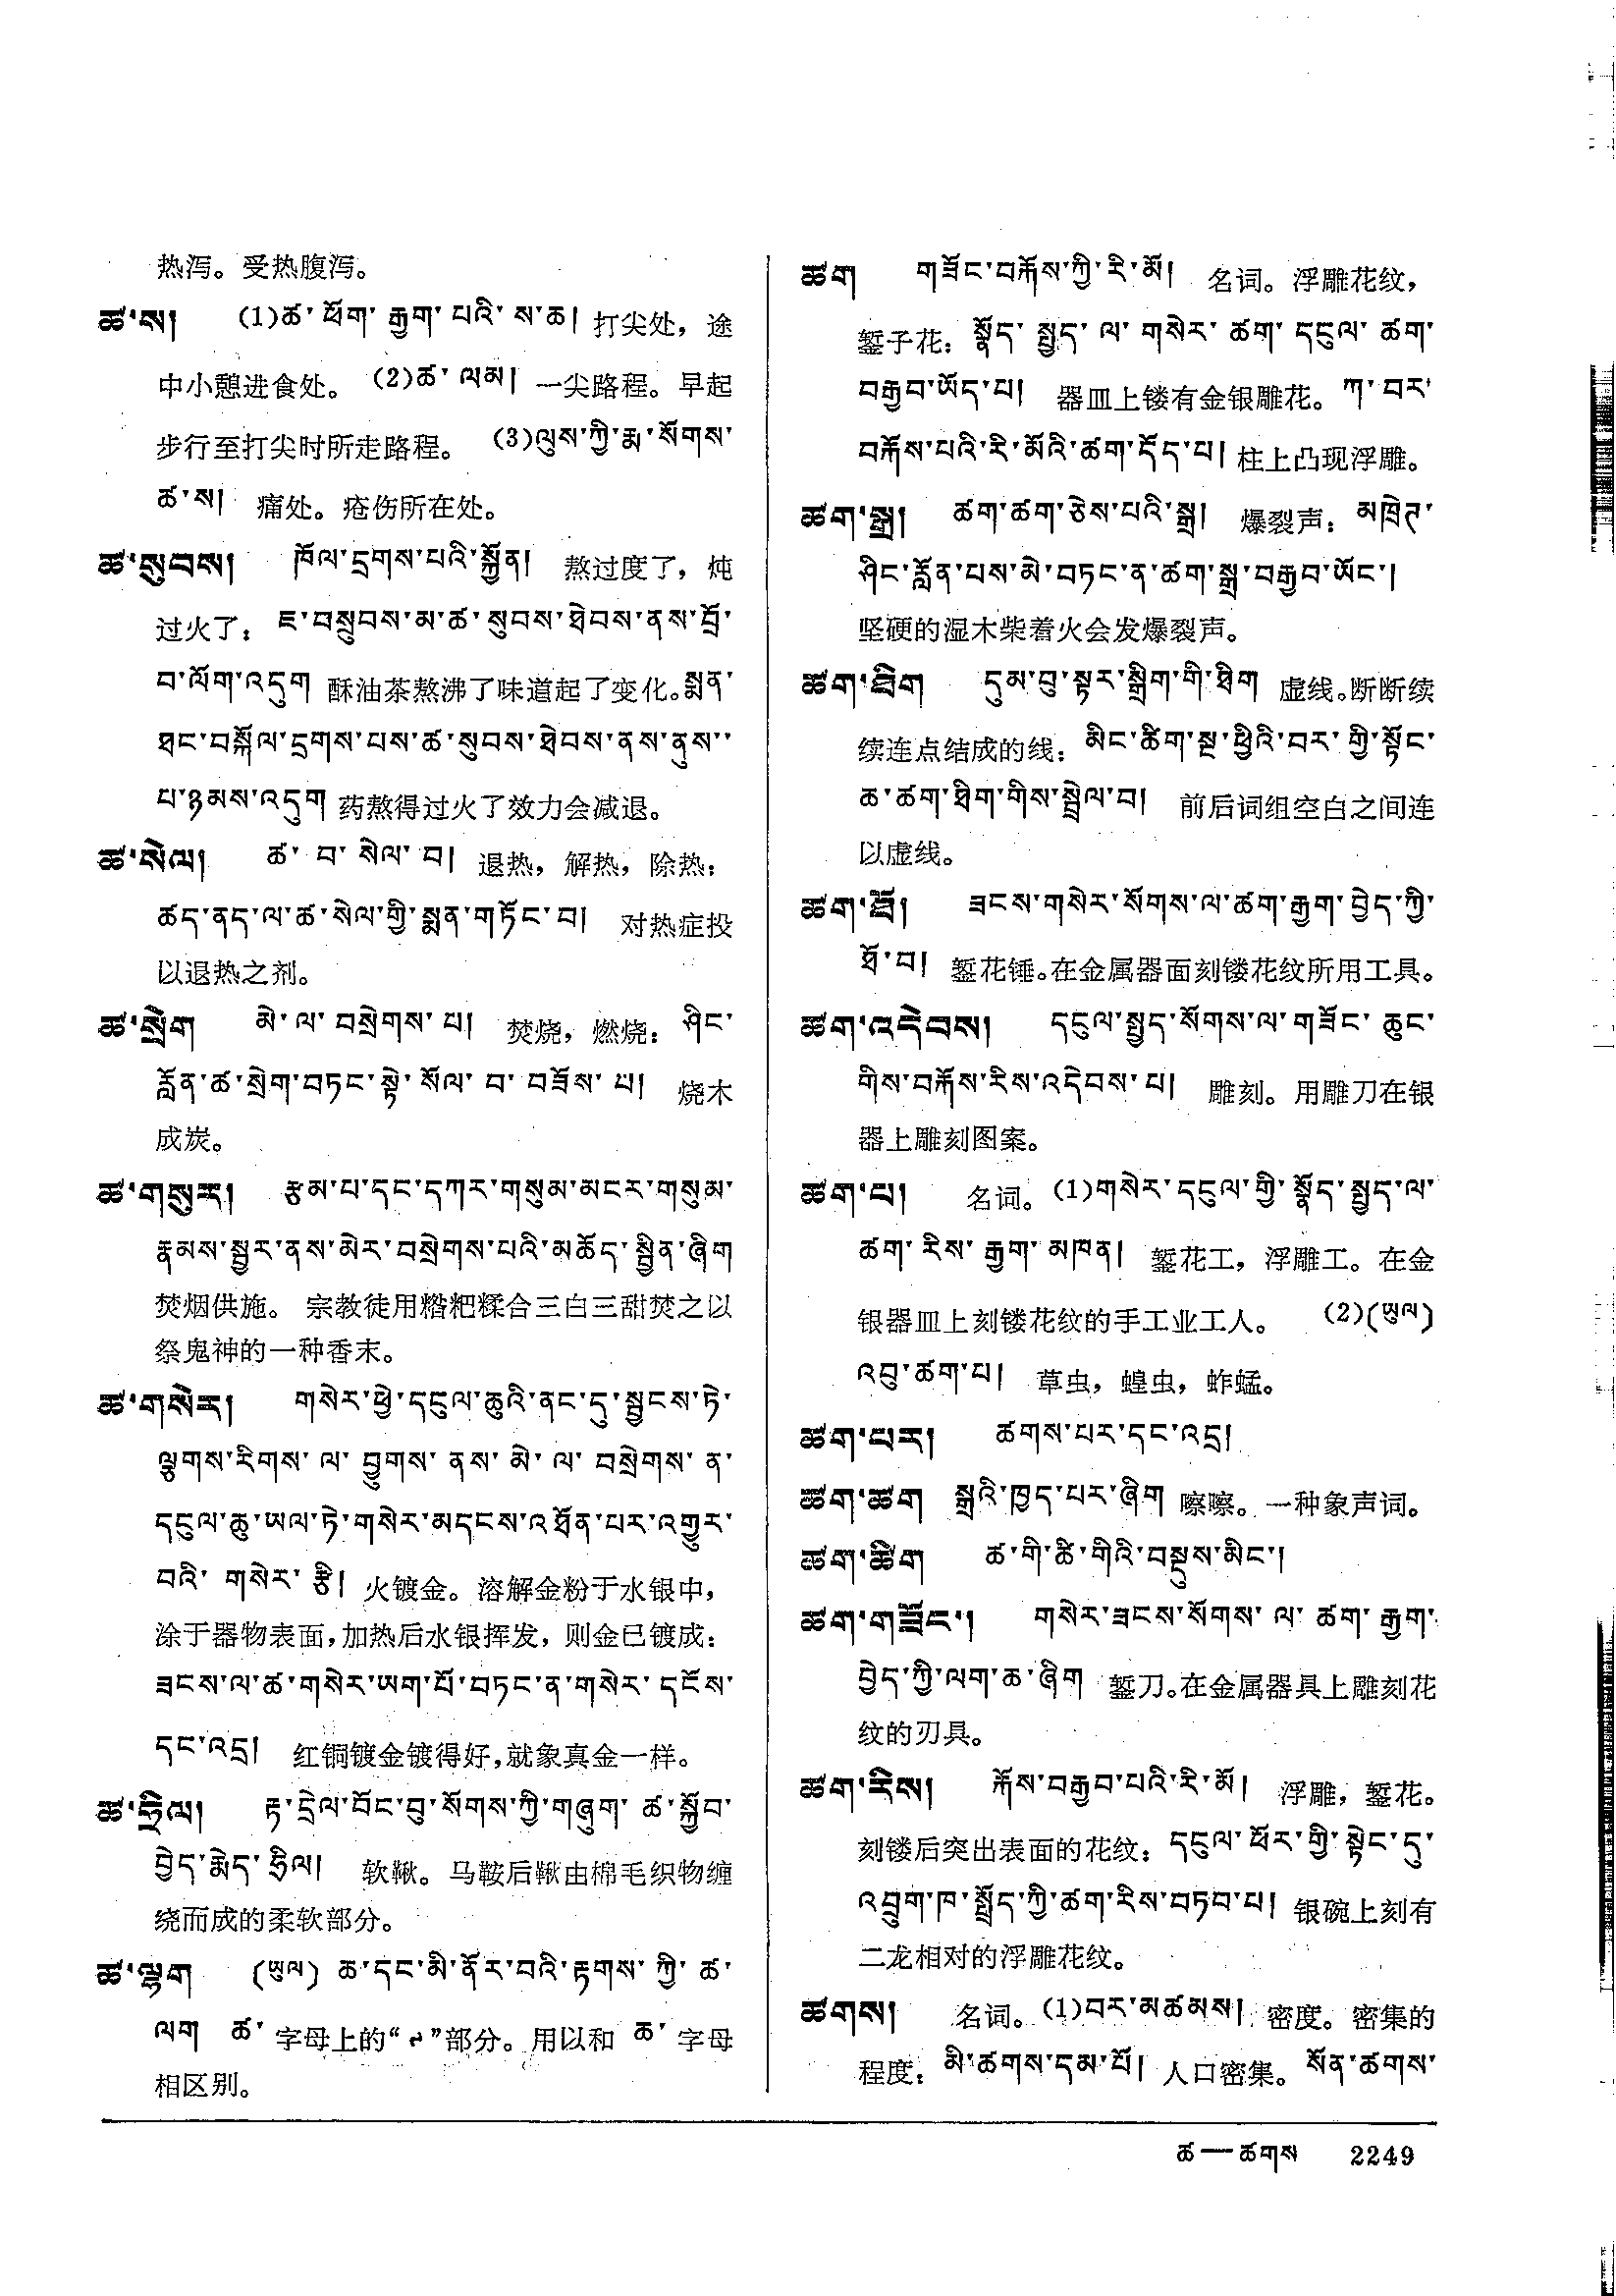 热泻。受热腹泻。
ཚ་ས། (1)ཚ་ཕོག་རྒྱག་པའི་ས་ཆ། 打尖处，途
中小憩进食处。(2)ཚ་ལམ། 一尖路程。早起
步行至打尖时所走路程。(3)ལུས་ཀྱི་རྨ་སོགས་
ཚ་ས། 痛处。疮伤所在处。
ཚ་སུབས། ཁོལ་དྲགས་པའི་སྐྱོན། 熬过度了，炖
过火了：ཇ་བསྲུབས་མ་ཚ་སུབས་ཐེབས་ནས་བྲོ་
བ་ལོག་འདུག 酥油茶熬沸了味道起了变化。སྨན་
ཐང་བསྐོལ་དྲགས་པས་ཚ་སུབས་ཐེབས་ནས་ནུས་
པ་ཉམས་འདུག 药熬得过火了效力会减退。
ཚ་སེལ། ཚ་བ་སེལ་བ། 退热，解热，除热：
ཚད་ནད་ལ་ཚ་སེལ་གྱི་སྨན་གཏོང་བ། 对热症投
以退热之剂。
ཚ་སྲེག མེ་ལ་བསྲེགས་པ། 焚烧，燃烧：ཤིང་
རློན་ཚ་སྲེག་བཏང་སྟེ་སོལ་བ་བཟོས་པ། 烧木
成炭。
ཚ་གསུར། རྩམ་པ་དང་དཀར་གསུམ་མངར་གསུམ་
རྣམས་སྦྱར་ནས་མེར་བསྲེགས་པའི་མཆོད་སྦྱིན་ཞིག
焚烟供施。宗教徒用糌粑糅合三白三甜焚之以
祭鬼神的一种香末。
ཚ་གསེར། གསེར་ཕྱེ་དངུལ་ཆུའི་ནང་དུ་སྦྱངས་ཏེ་
ལྕགས་རིགས་ལ་བྱུགས་ནས་མེ་ལ་བསྲེགས་ན་
དངུལ་ཆུ་ཡལ་ཏེ་གསེར་མདངས་འཐོན་པར་འགྱུར་
བའི་གསེར་རྩི། 火镀金。溶解金粉于水银中，
涂于器物表面，加热后水银挥发，则金已镀成：
ཟངས་ལ་ཚ་གསེར་ཡག་པོ་བཏང་ན་གསེར་དངོས་
དང་འདྲ། 红铜镀金镀得好，就象真金一样。
ཚ་ཧྲིལ། རྟ་དྲེལ་བོང་བུ་སོགས་ཀྱི་གཞུག་ཚ་སྐྱོབ་
བྱེད་རྨེད་ཧྲིལ། 软鞦。马鞍后鞦由棉毛织物缠
绕而成的柔软部分。
ཚ་ལྷག (ཡུལ) ཆ་དང་མི་ནོར་བའི་རྟགས་ཀྱི་ཚ་
ལག ཚ་ 字母上的“༹”部分。用以和 ཆ་ 字母
相区别。
ཚག གཟོང་བརྐོས་ཀྱི་རི་མོ། 名词。浮雕花纹，
錾子花：སྣོད་སྤྱད་ལ་གསེར་ཚག་དངུལ་ཚག་
བརྒྱབ་ཡོད་པ། 器皿上镂有金银雕花。ཀ་བར་
བརྐོས་པའི་རི་མོའི་ཚག་དོད་པ། 柱上凸现浮雕。
ཚག་སྒྲ། ཚག་ཚག་ཅེས་པའི་སྒྲ། 爆裂声：མཁྲེཊ་
ཤིང་རློན་པས་མེ་བཏང་ན་ཚག་སྒྲ་བརྒྱབ་ཡོང་།
坚硬的湿木柴着火会发爆裂声。
ཚག་ཐིག དུམ་བུ་སྟར་སྒྲིག་གི་ཐིག 虚线。断断续
续连点结成的线：མིང་ཚིག་སྔ་ཕྱིའི་བར་གྱི་སྟོང་
ཆ་ཚག་ཐིག་གིས་སྦྲེལ་བ། 前后词组空白之间连
以虚线。
ཚག་ཐོ། ཟངས་གསེར་སོགས་ལ་ཚག་རྒྱག་བྱེད་ཀྱི་
ཐོ་བ། 錾花锤。在金属器面刻镂花纹所用工具。
ཚག་འདེབས། དངུལ་སྤྱད་སོགས་ལ་གཟོང་ཆུང་
གིས་བརྐོས་རིས་འདེབས་པ། 雕刻。用雕刀在银
器上雕刻图案。
ཚག་པ། 名词。(1)གསེར་དངུལ་གྱི་སྣོད་སྤྱད་ལ་
ཚག་རིས་རྒྱག་མཁན། 錾花工，浮雕工。在金
银器皿上刻镂花纹的手工业工人。(2)(ཡུལ)
འབུ་ཚག་པ། 草虫，蝗虫，蚱蜢。
ཚག་པར། ཚགས་པར་དང་འདྲ།
ཚག་ཚག སྒྲའི་ཁྱད་པར་ཞིག 嚓嚓。一种象声词。
ཚག་ཚིག ཚ་གི་ཚི་གིའི་བསྡུས་མིང་།
ཚག་གཟོང་། གསེར་ཟངས་སོགས་ལ་ཚག་རྒྱག་
བྱེད་ཀྱི་ལག་ཆ་ཞིག 錾刀。在金属器具上雕刻花
纹的刃具。
ཚག་རིས། རྐོས་བརྒྱབ་པའི་རི་མོ། 浮雕，錾花。
刻镂后突出表面的花纹：དངུལ་ཕོར་གྱི་སྟེང་དུ་
འབྲུག་ཁ་སྤྲོད་ཀྱི་ཚག་རིས་བཏབ་པ། 银碗上刻有
二龙相对的浮雕花纹。
ཚགས། 名词。(1)བར་མཚམས། 密度。密集的
程度：མི་ཚགས་དམ་པོ། 人口密集。སོན་ཚགས་
ཚ — ཚགས 2249